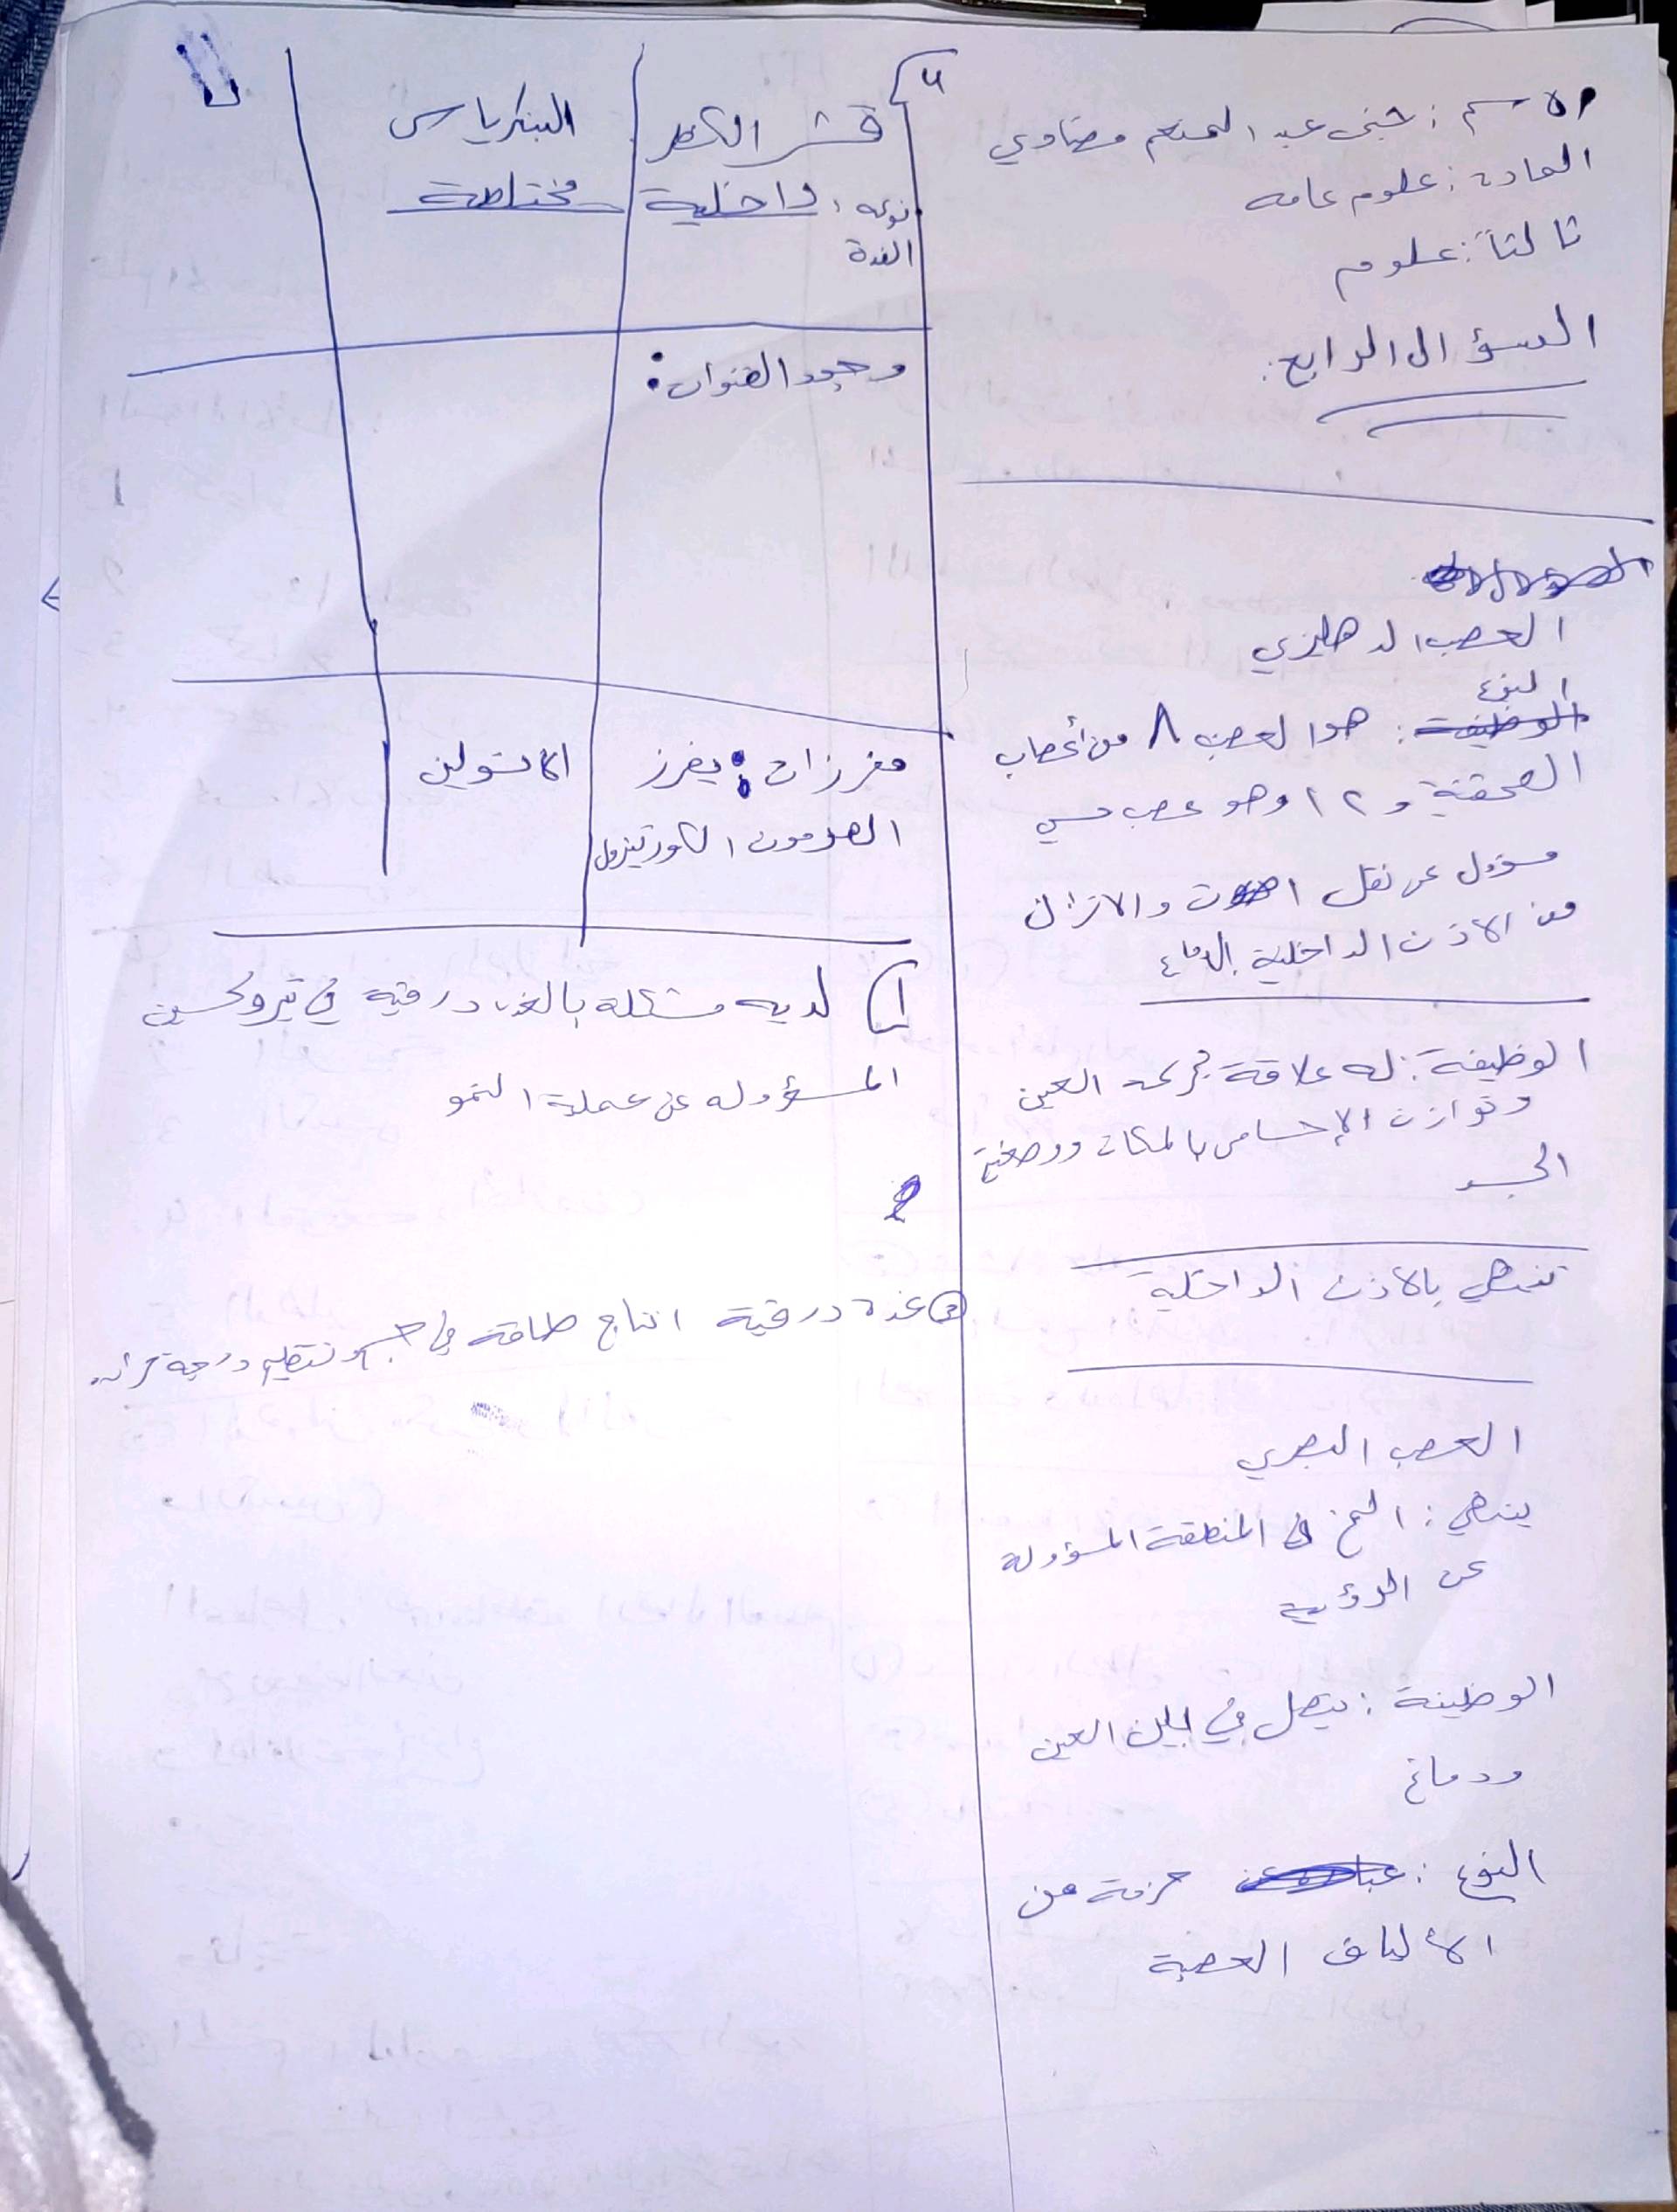 الاسم : جنى عبد المنعم مصناوي
المادة : علوم عامه
ثالثاً : علوم
السؤال الرابع :
العصب الدهليزي
النوع
الوظيفة : هو العصب ٨ من أعصاب
الصحقنية و ١٢ وهو عصب حسي
مسؤول عن نقل اصوت والاتزان
من الاذن الداخلية الدماغ
الوظيفة : له علاقة بحركة العين
وتوازن الإحساس بالمكان ووضعية
الجسد
تنتهي بالاذن الداخلية
العصب البصري
ينتهي : المخ في المنطقة المسؤولة
عن الرؤية
الوظيفة : يتصل في بين العين
ودماغ
النوع : حزمة من
الألياف العصبية
قشر الكظر البنكرياس
نوعه داخلية مختلطة
الغدة
وجود القنوات :
مفرزات : يفرز الانسولين
الهرمون الكورتيزول
١) لديه مشكله بالغدة درقية في تيروكسين
المسؤوله عن عملية النمو
غدة درقية انتاج طاقة في جسم وتنظيم درجة حراره